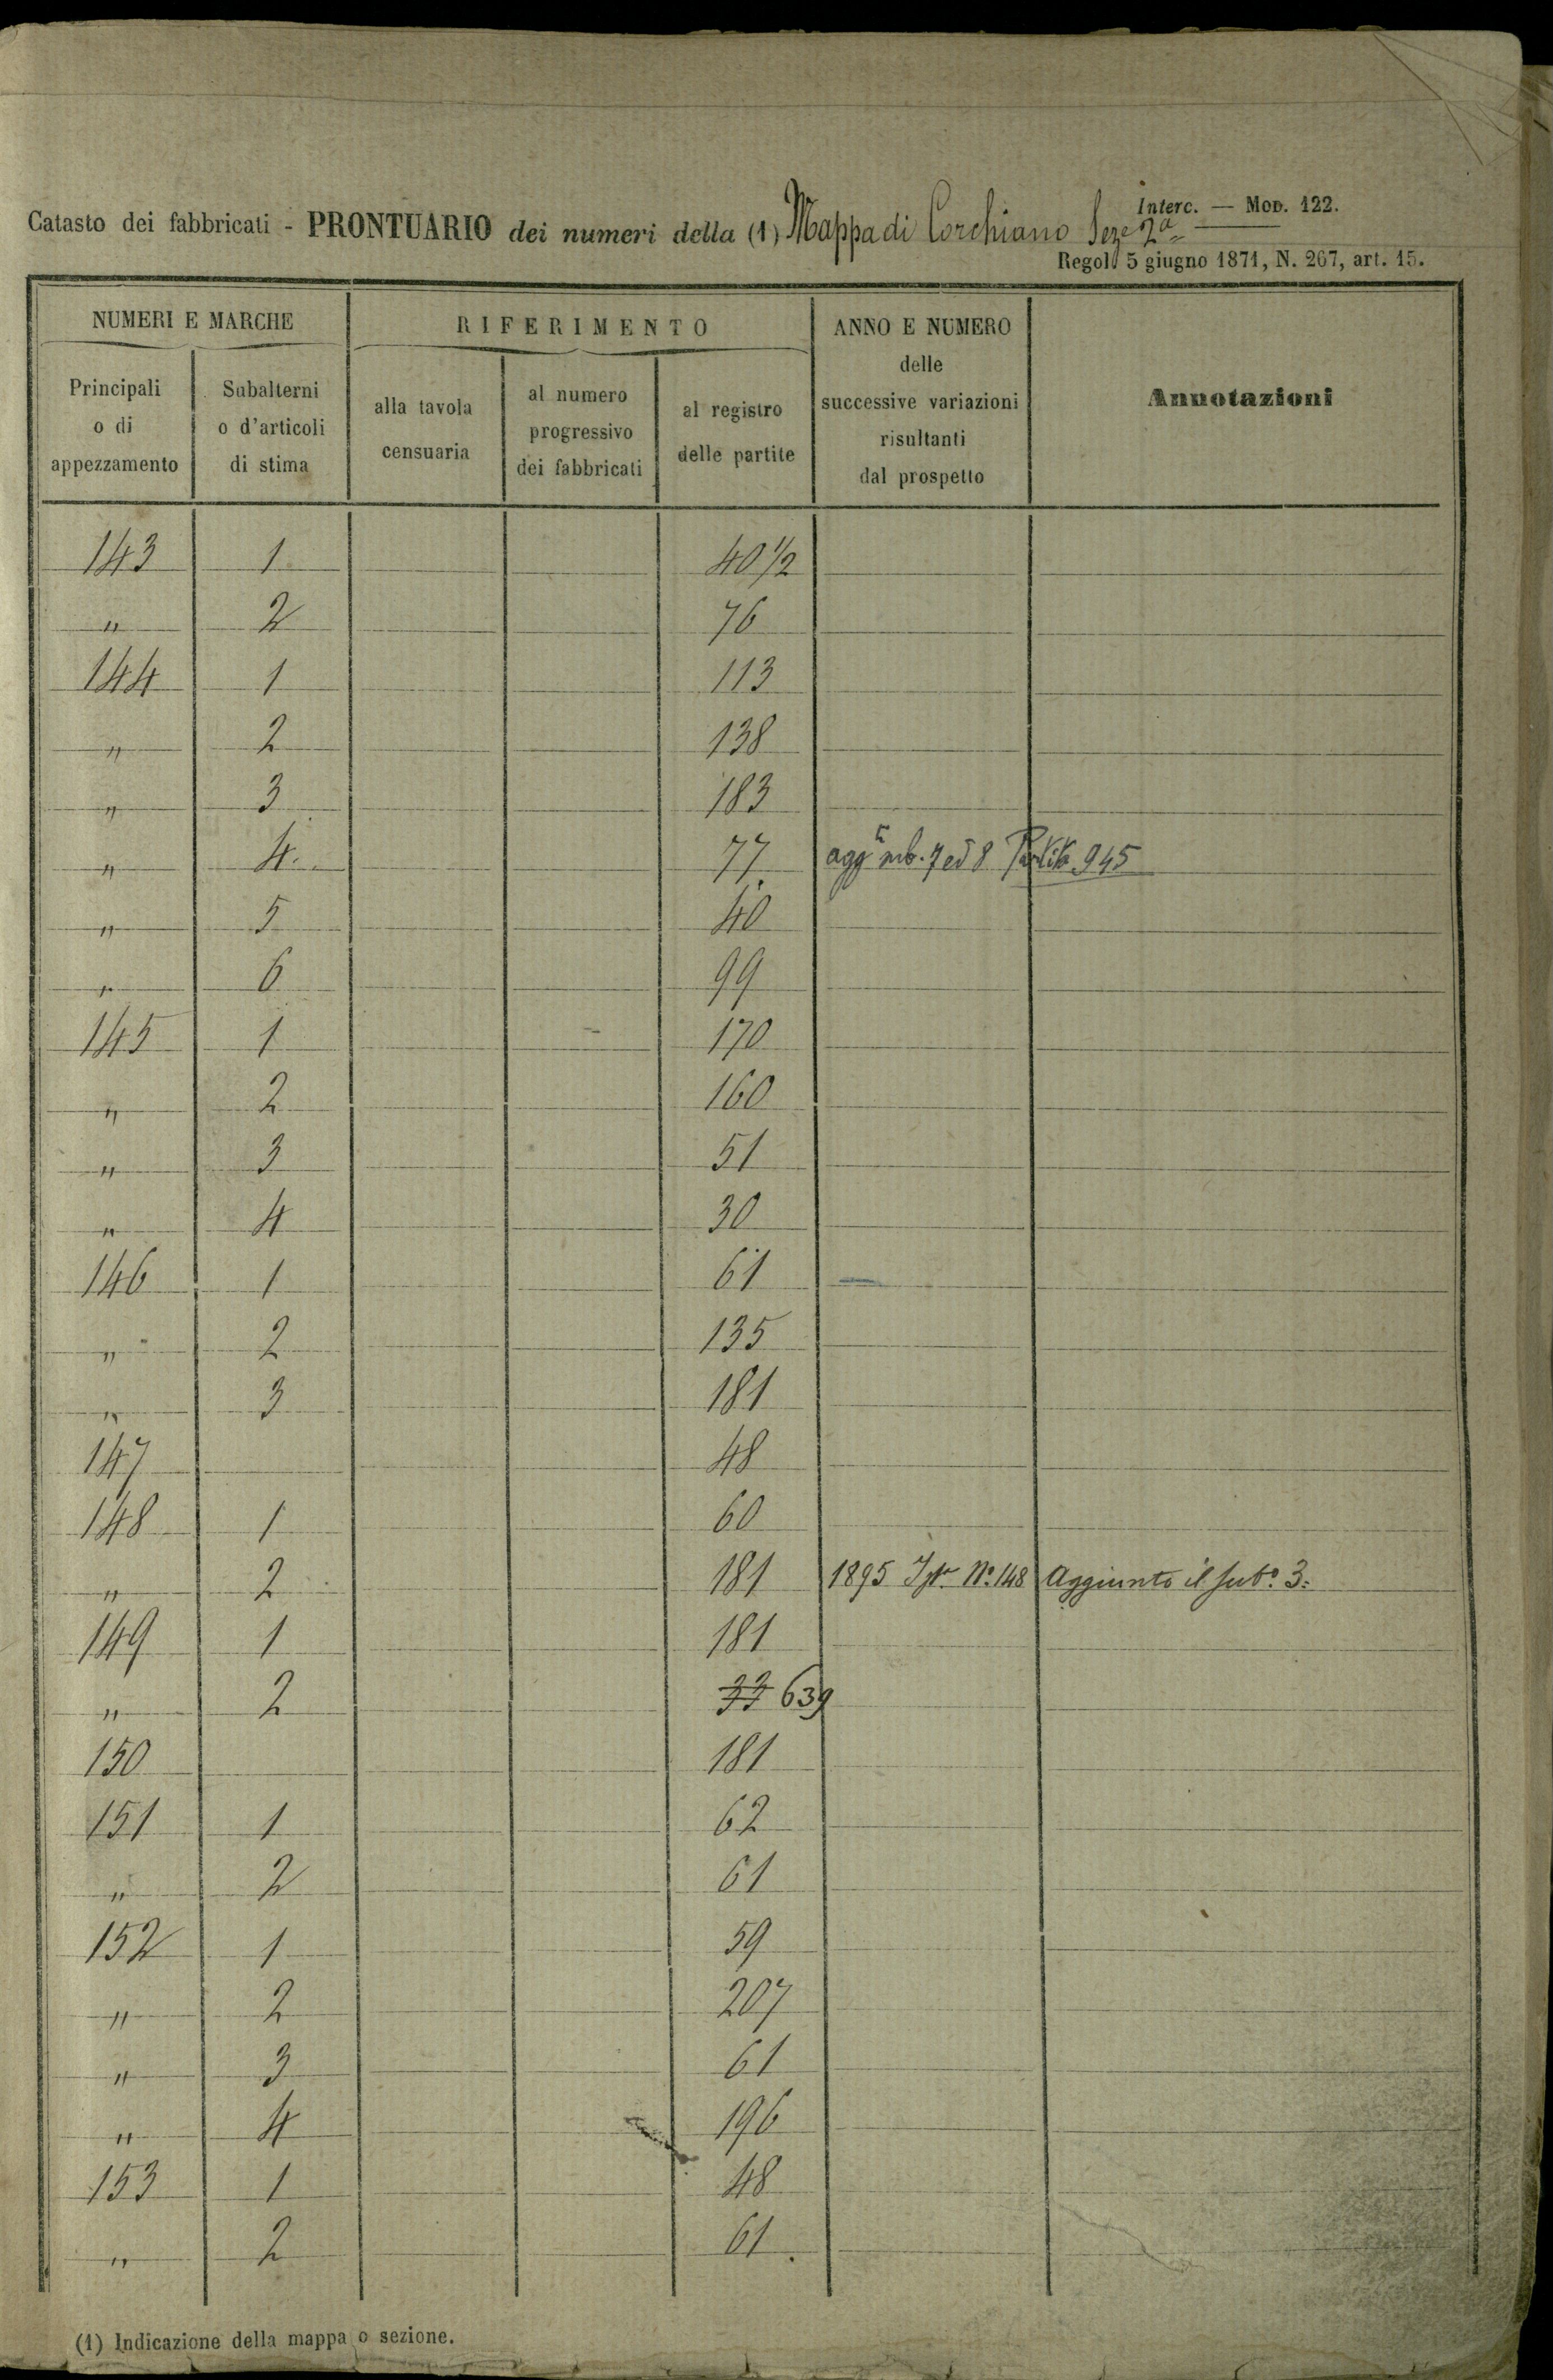 Interc. — Mod. 122.
Catasto dei fabbricati - PRONTUARIO dei numeri della (1) Mappa di Corchiano Seze 2a
Regol. 5 giugno 1871, N. 267, art. 15.
NUMERI E MARCHE RIFERIMENTO ANNO E NUMERO delle successive variazioni risultanti dal prospetto Annotazioni
Principali o di appezzamento Subalterni o d'articoli di stima alla tavola censuaria al numero progressivo dei fabbricati al registro delle partite
143 1 40 1/2
" 2 76
144 1 113
" 2 138
" 3 183
" 4 77 aggti sub. 7 ed 8 Partita 945
" 5 40
" 6 99
145 1 170
" 2 160
" 3 51
" 4 30
146 1 61
" 2 135
" 3 181
147 48
148 1 60
" 2 181 1895 No. 148 Aggiunto il subo. 3.
149 1 181
" 2 33 639
150 181
151 1 62
" 2 61
152 1 59
" 2 207
" 3 61
" 4 196
153 1 48
" 2 61
(1) Indicazione della mappa o sezione.